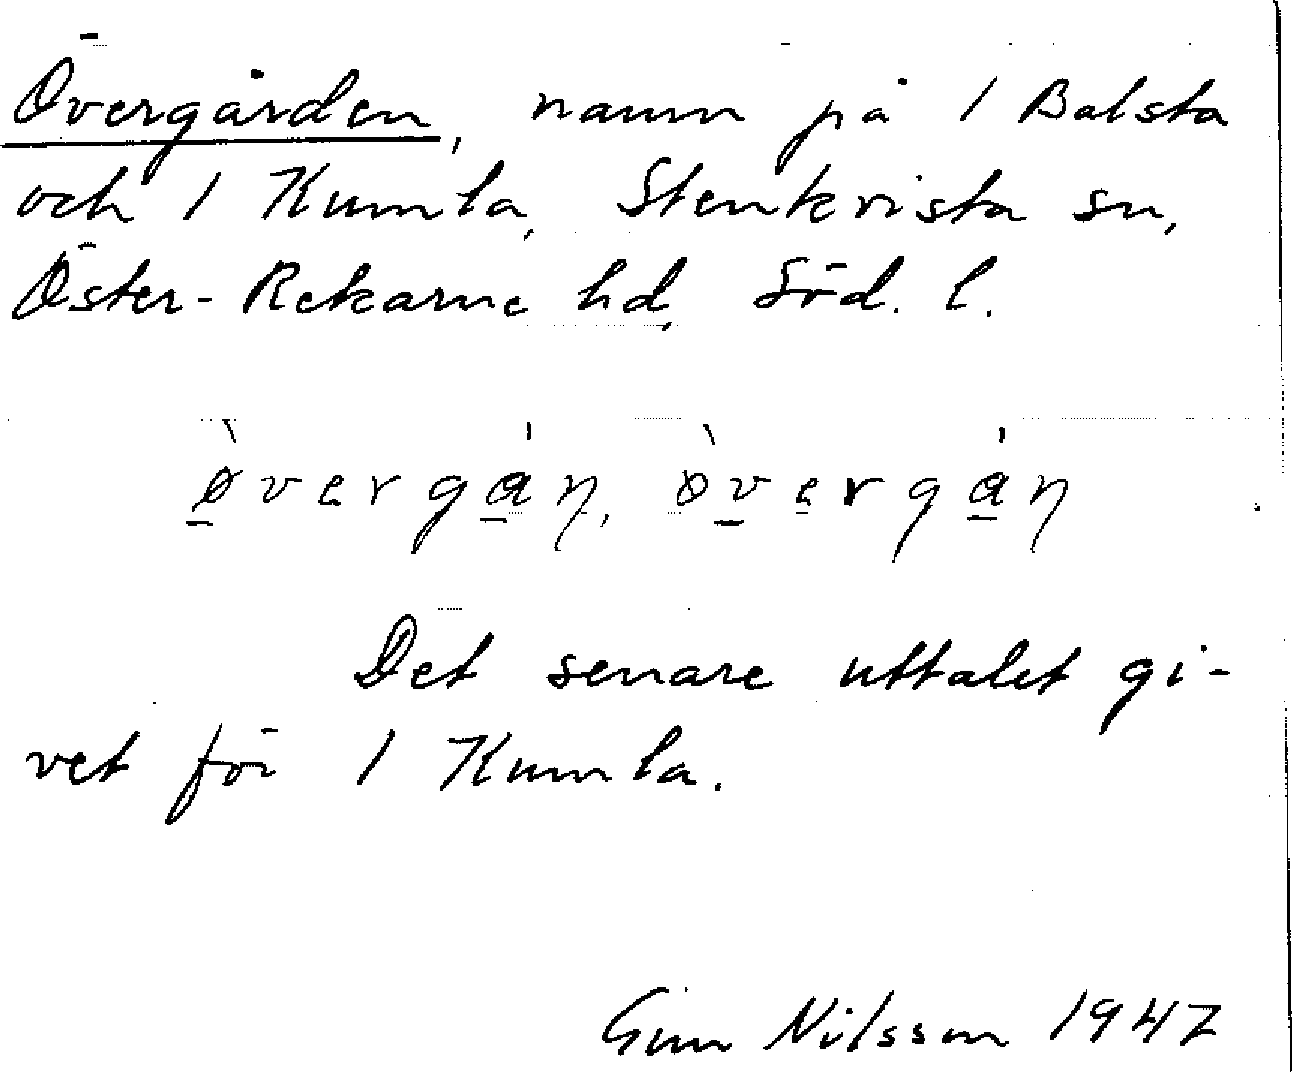 Övergården, namn på 1 Balsta
och 1 Kumla, Stenkvista sn,
Öster-Rekarne hd, Söd. l.
ø̀vergán, øvergán
Det senare uttalet gi-
vet för 1 Kumla.
Gun Nilsson 1947